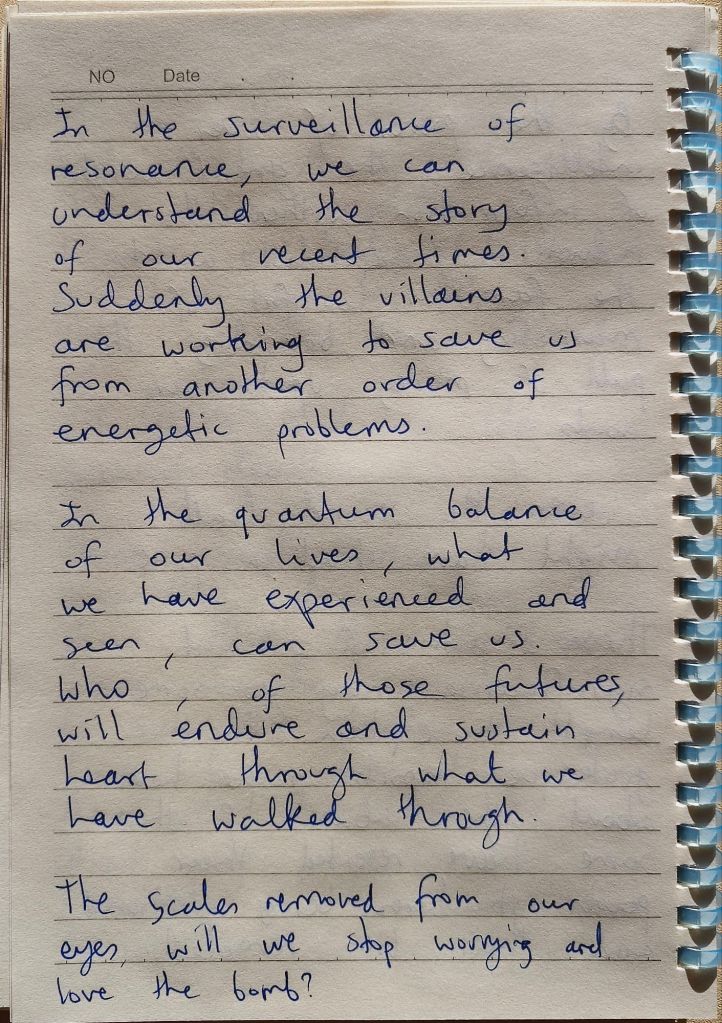 NO Date . .
In the surveillance of
resonance, we can
understand the story
of our recent times.
Suddenly the villains
are working to save us
from another order of
energetic problems.
In the quantum balance
of our lives, what
we have experienced and
seen, can save us.
Who, of those futures,
will endure and sustain
heart through what we
have walked through.
The scales removed from our
eyes, will we stop worrying and
love the bomb?